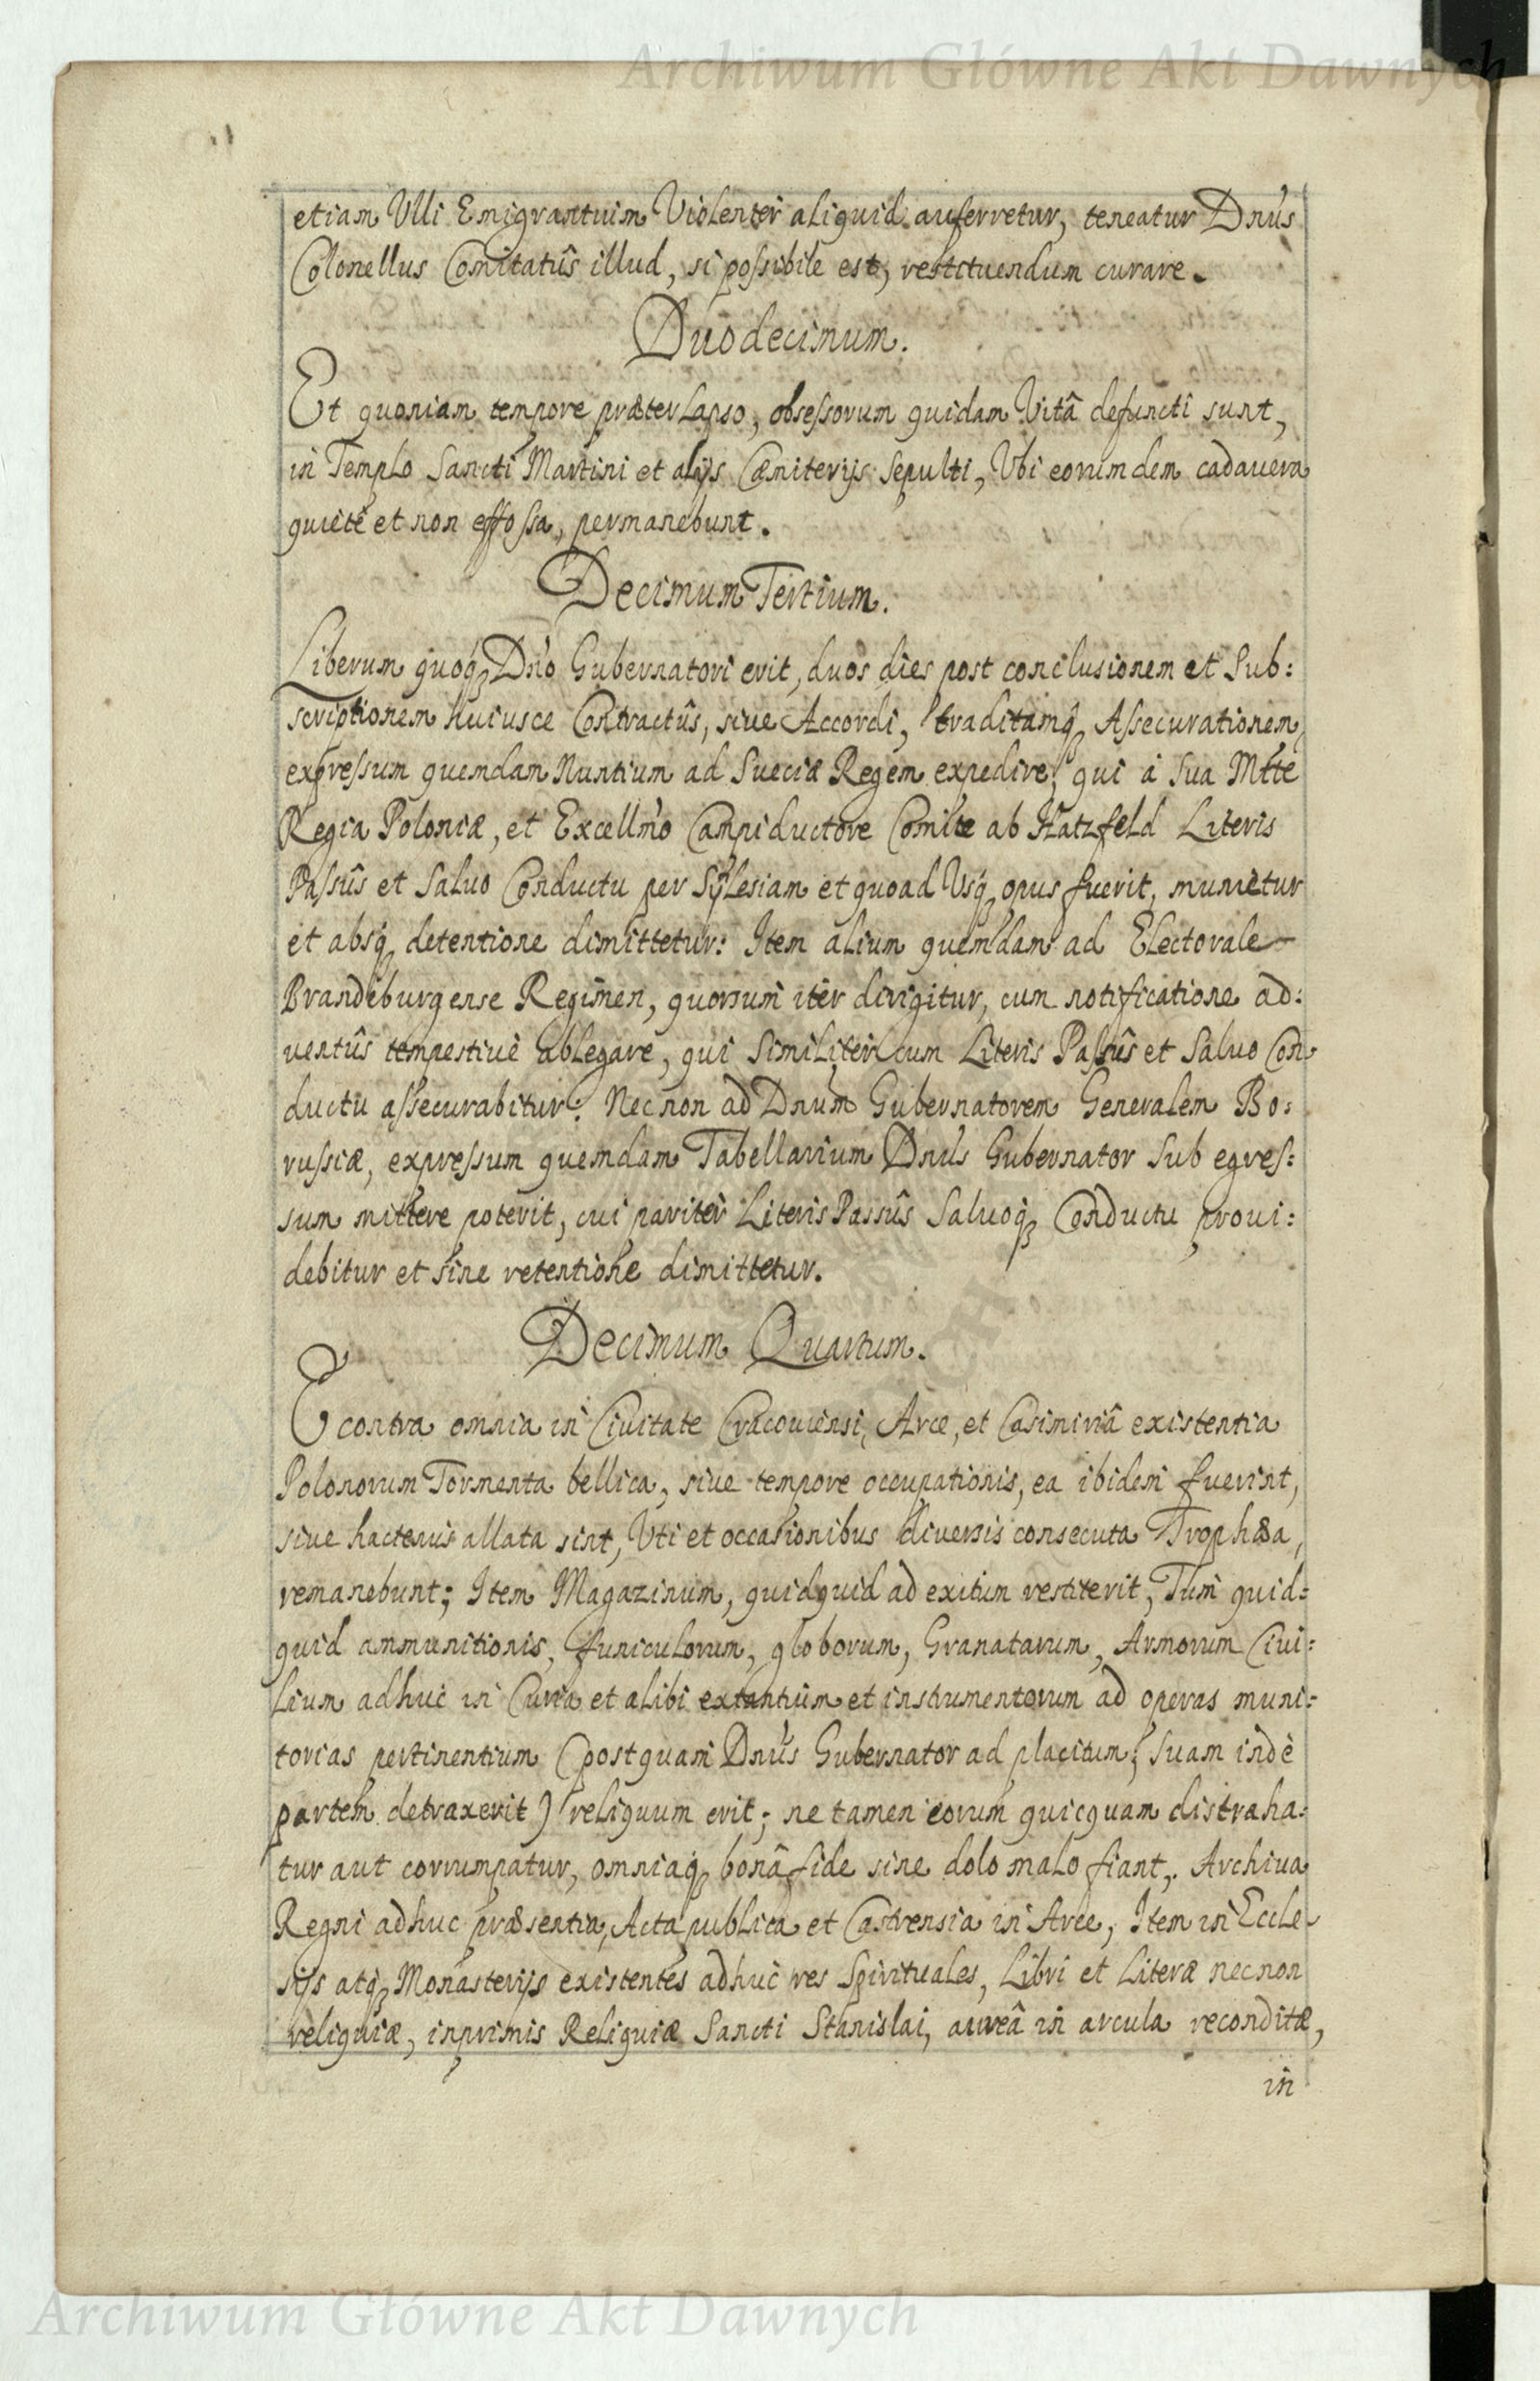 Archiwum Główne Akt Dawnych
etiam Ulli Emigrantium Violenter aliquid auferretur, teneatur Dnus
Colonellus Comitatûs illud, si possibile est, restituendum curare.
Duodecimum.
Et quoniam tempore præterlapso, obsessorum quidam Vitâ defuncti sunt,
in Templo Sancti Martini et alijs Cæmiterijs sepulti, Vbi eorumdem cadauera
quietè et non effossa, permanebunt.
Decimum Tertium.
Liberum quoq Dno Gubernatori erit, duos dies post conclusionem et Sub:
scriptionem huiusce Contractûs, siue Accordi, traditamq Assecurationem,
expressum quemdam Nuntium ad Sueciæ Regem expedire, qui à Sua Mtte
Regia Poloniæ, et Excellmo Campiductore Comite ab Hatzfeld Literis
Passûs et Saluo Conductu per Sylesiam et quoad Vsq opus fuerit, munietur
et absq detentione dimittetur: Item alium quemdam ad Electorale
Brandeburgense Regimen, quorsum iter dirigitur, cum notificatione ad:
uentûs tempestiuè ablegare, qui similiter cum Literis Passûs et Saluo Con
ductu assecurabitur: Nec non ad Dnum Gubernatorem Generalem Bo:
russiæ, expressum quemdam Tabellarium Dnus Gubernator Sub egres:
sum mittere poterit, cui pariter Literis Passûs Saluoq Conductu proui:
debitur et sine retentione dimittetur.
Decimum Quartum.
E contra omnia in Ciuitate Cracouiensi, Arce, et Casimiriâ existentia
Polonorum Tormenta bellica, siue tempore occupationis, ea ibidem fuerint,
siue hactenus allata sint, Vti et occasionibus diuersis consecuta Trophæa,
remanebunt; Item Magazinum, quidquid ad exitum restiterit, Tum quid:
quid ammunitionis, funiculorum, globorum, Granatarum, Armorum Ciui:
lium adhuc in Curia et alibi extantium et instrumentorum ad operas muni:
torias pertinentium (postquam Dnus Gubernator ad placitum, suam indè
partem detraxerit) reliquum erit; ne tamen eorum quicquam distraha:
tur aut corrumpatur, omniaq bonâ fide sine dolo malo fiant, Archiua
Regni adhuc præsentia, Acta publica et Castrensia in Arce, Item in Eccle
sijs atq Monasterijs existentes adhuc res Spirituales, Libri et Literæ nec non
reliquiæ, inprimis Reliquiæ Sancti Stanislai, aureâ in arcula reconditæ,
in
Archiwum Główne Akt Dawnych